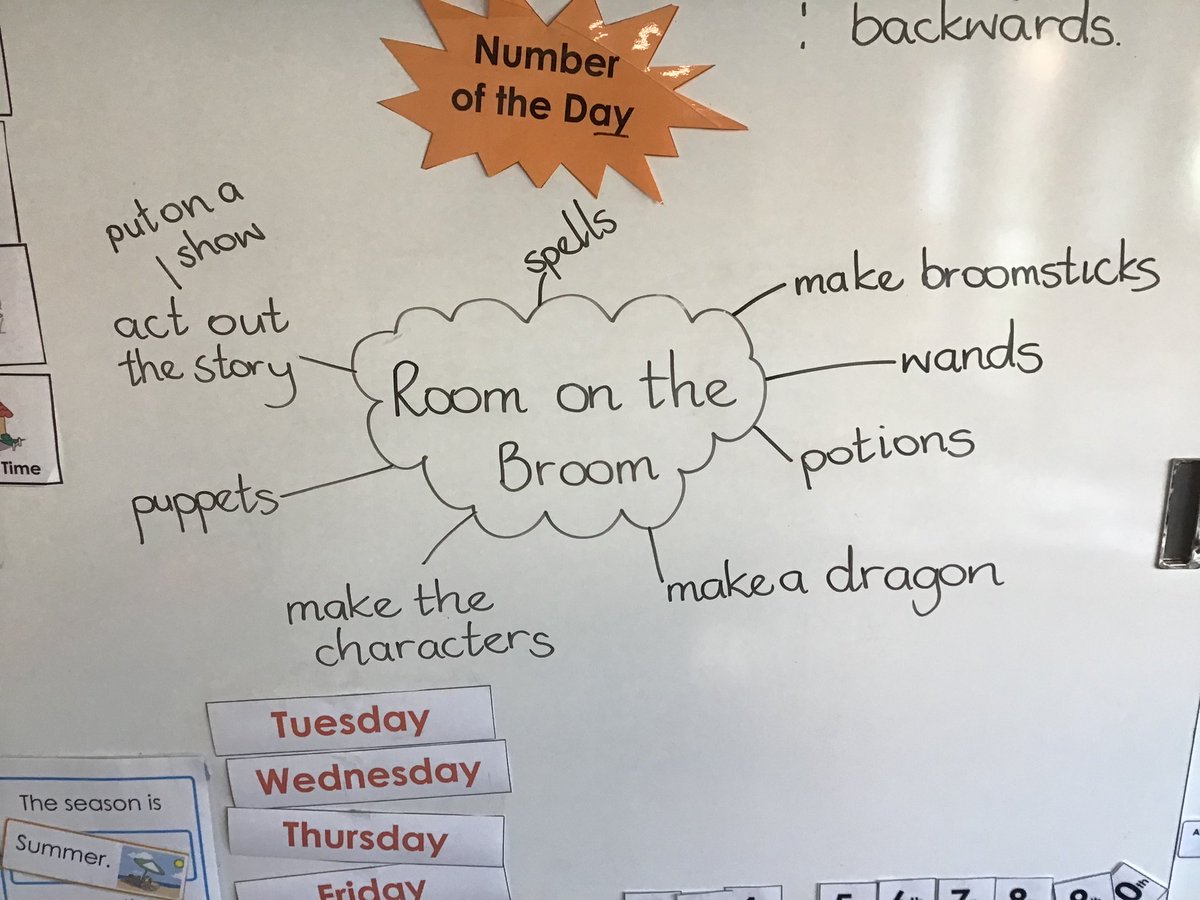 backwards.
Number
of the Day
put on a
show
spells
act out
the story
make broomsticks
wands
Room on the
Broom
potions
puppets
make a dragon
make the
characters
Time
Tuesday
Wednesday
Thursday
Friday
The season is
Summer.